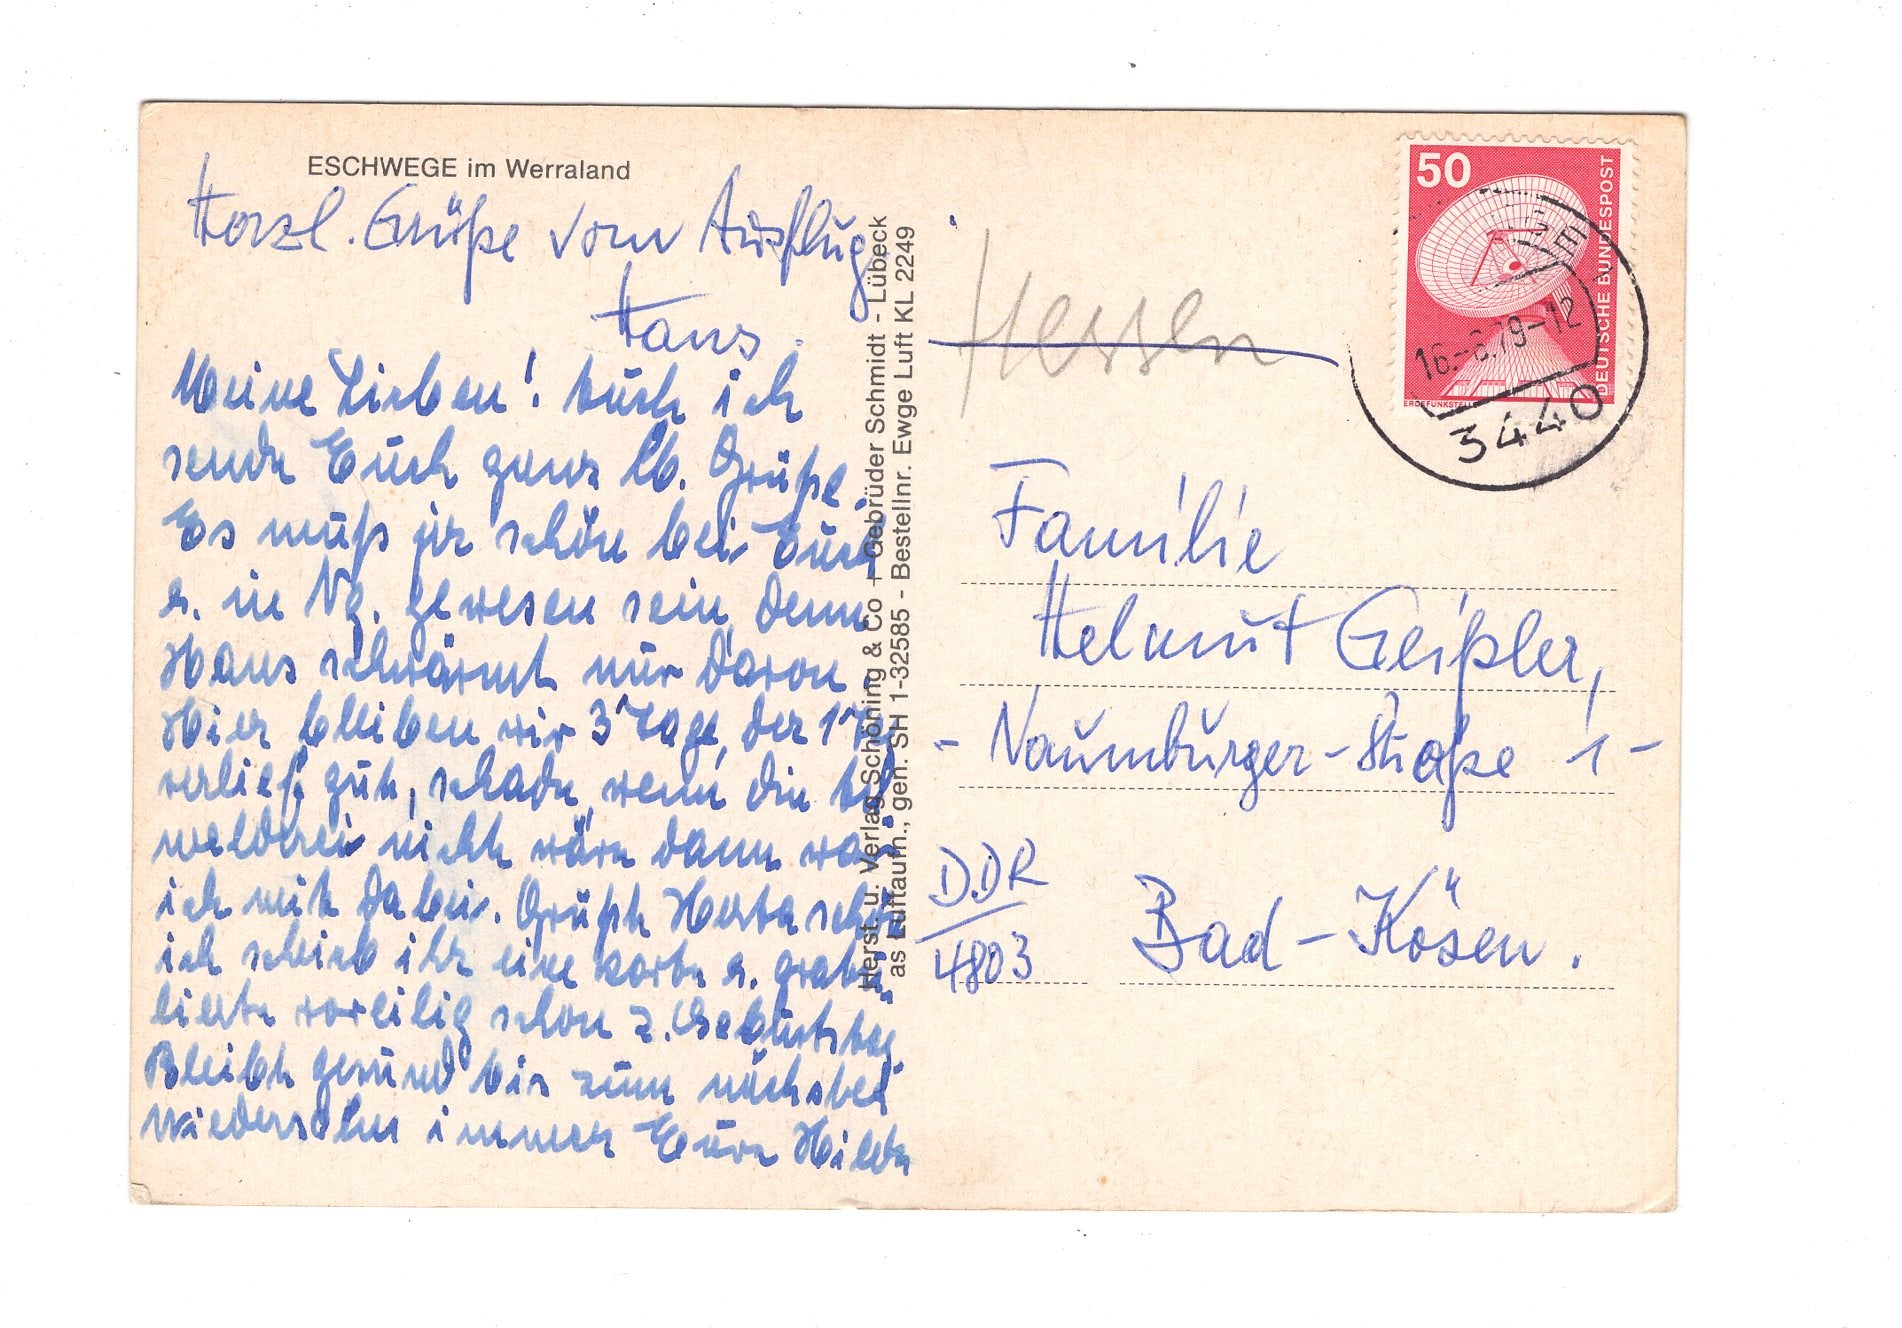 ESCHWEGE im Werraland
Herzl. Grüße vom Ausflug
Hans.
Meine Lieben! Auch ich
sende Euch ganz lb. Grüße.
Es muß schön bei Euch
u. in Ng. gewesen sein, denn
Hans schwärmt nur davon
Hier bleiben wir 3 Tage, der 1.
verlief gut, schade, wenn die
nicht wäre dann wär
ich mit dabei. Grüßt Herta schön
ich schrieb ihr eine Karte u. gratu
lierte voreilig schon z. Geburtstag
Bleibt gesund bis zum nächsten
Wiedersehn immer Eure Hilde
Herst. u. Verlag Schöning & Co + Gebrüder Schmidt - Lübeck
as Luftaufn., gen. SH 1-32585 - Bestellnr. Ewge Luft KL 2249
Hessen
50
DEUTSCHE BUNDESPOST
ERDEFUNKSTELLE
16.-8.79-12
3440
Familie
Helmut Geißler,
- Naumburger-Straße 1-
DDR
4803
Bad-Kösen.